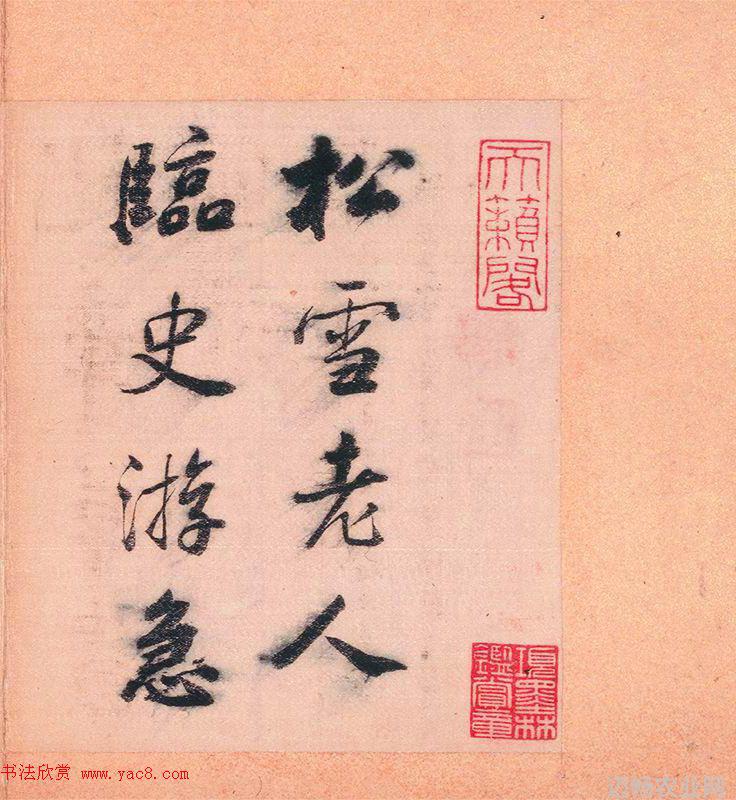 天籟閣
松雪老人
臨史游急
項墨林鑑賞章
书法欣赏 www.yac8.com
迈畅农业网